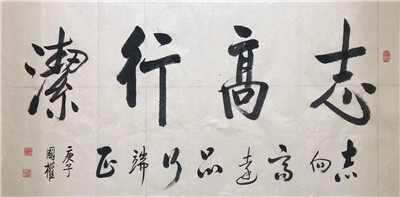 志高行潔
志向高遠品行端正
庚子
國權